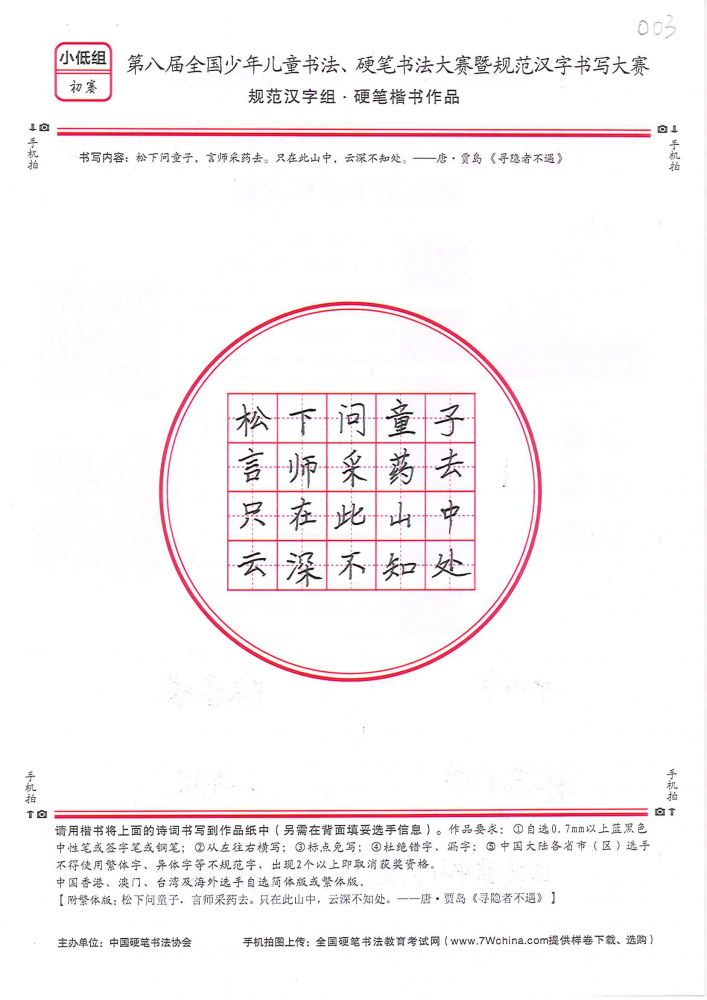 003
小低组
初赛
第八届全国少年儿童书法、硬笔书法大赛暨规范汉字书写大赛
规范汉字组·硬笔楷书作品
手机拍
手机拍
书写内容：松下问童子，言师采药去。只在此山中，云深不知处。——唐·贾岛《寻隐者不遇》
松下问童子
言师采药去
只在此山中
云深不知处
手机拍
手机拍
请用楷书将上面的诗词书写到作品纸中（另需在背面填妥选手信息）。作品要求：①自选0.7mm以上蓝黑色
中性笔或签字笔或钢笔；②从左往右横写；③标点免写；④杜绝错字、漏字；⑤中国大陆各省市（区）选手
不得使用繁体字、异体字等不规范字，出现2个以上即取消获奖资格。
中国香港、澳门、台湾及海外选手自选简体版或繁体版。
【附繁体版：松下问童子，言师采药去。只在此山中，云深不知处。——唐·贾岛《寻隐者不遇》】
主办单位：中国硬笔书法协会
手机拍图上传：全国硬笔书法教育考试网（www.7Wchina.com提供样卷下载、选购）